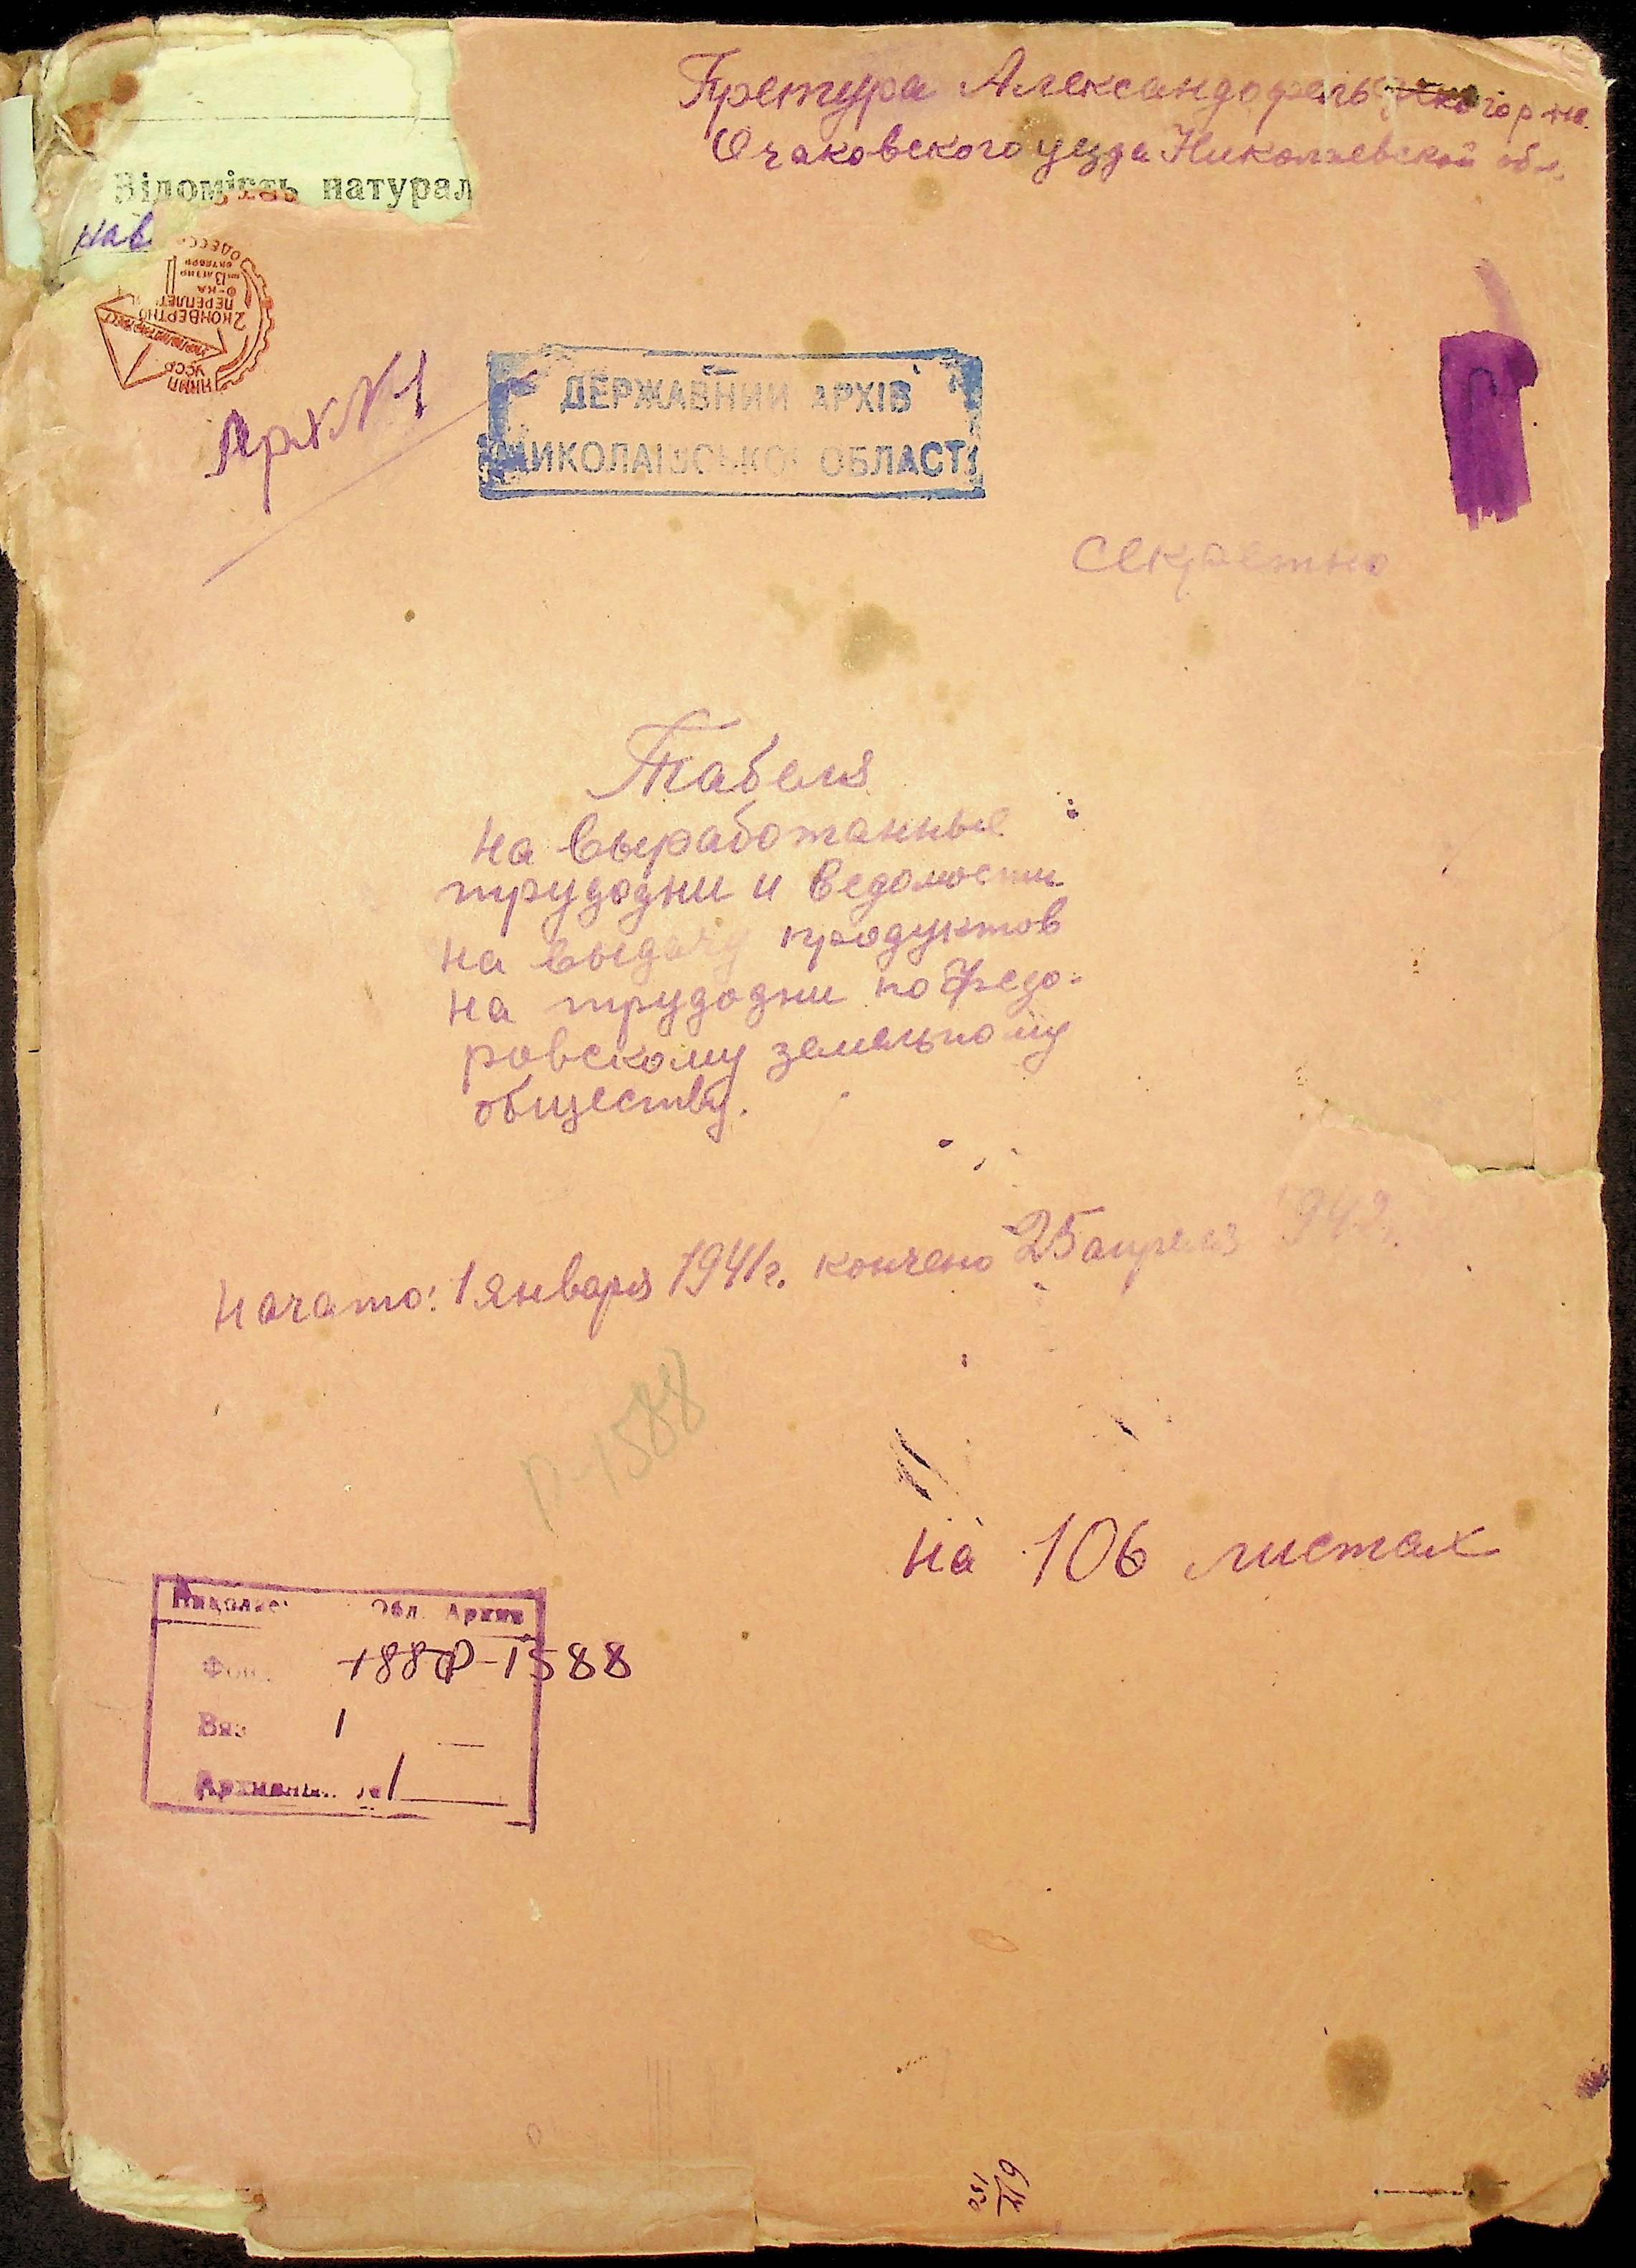 Претура Александрофельдского р-на
Очаковского уезда Николаевской обл.
Відомість натурал
нав
НКМП
УССР
2 КОНВЕРТНО
ПЕРЕПЛЕТ
Ф-КА
ОДЕСС
Арх N 1
ДЕРЖАВНИЙ АРХІВ
МИКОЛАЇВСЬКОЇ ОБЛАСТІ
Секретно
Табеля
на выработанные
трудодни и ведомости
на выдачу продуктов
на трудодни по Федо-
ровскому земельному
обществу.
Начато: 1 января 1941г. кончено 25 апреля 1942г.
Р-1588
на 106 листах
Николаев Обл. Архив
Фон. Р-1588
Вяз 1
Архивный № 1